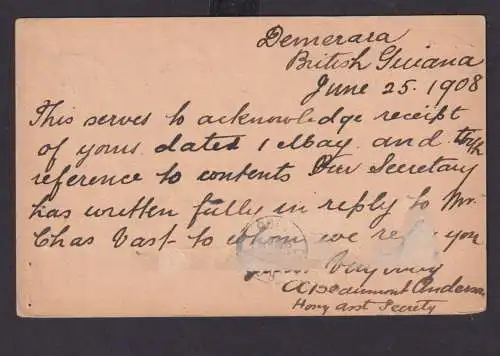 Demerara
British Guiana
June 25. 1908
This serves to acknowledge receipt
of yours dated 1 May and with
reference to contents Our Secretary
has written fully in reply to Mr.
Chas Vast to whom we refer you
Very truly
Beaumont Anderson
Hony asst Secrety